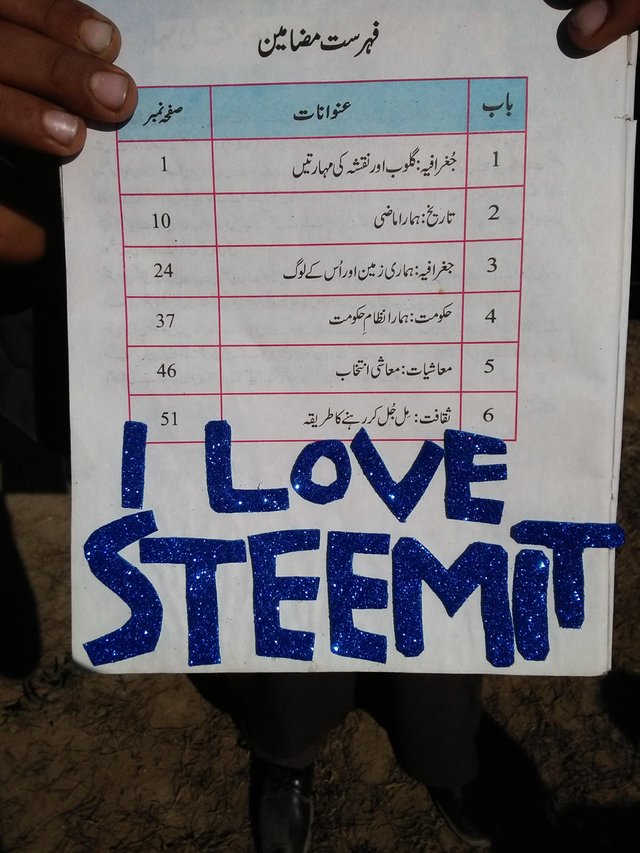 فہرست مضامین
باب عنوانات صفحہ نمبر
1 جُغرافیہ: گلوب اور نقشہ کی مہارتیں 1
2 تاریخ: ہمارا ماضی 10
3 جغرافیہ: ہماری زمین اور اُس کے لوگ 24
4 حکومت: ہمارا نظامِ حکومت 37
5 معاشیات: معاشی انتخاب 46
6 ثقافت: مِل جُل کر رہنے کا طریقہ 51
I LOVE
STEEMIT